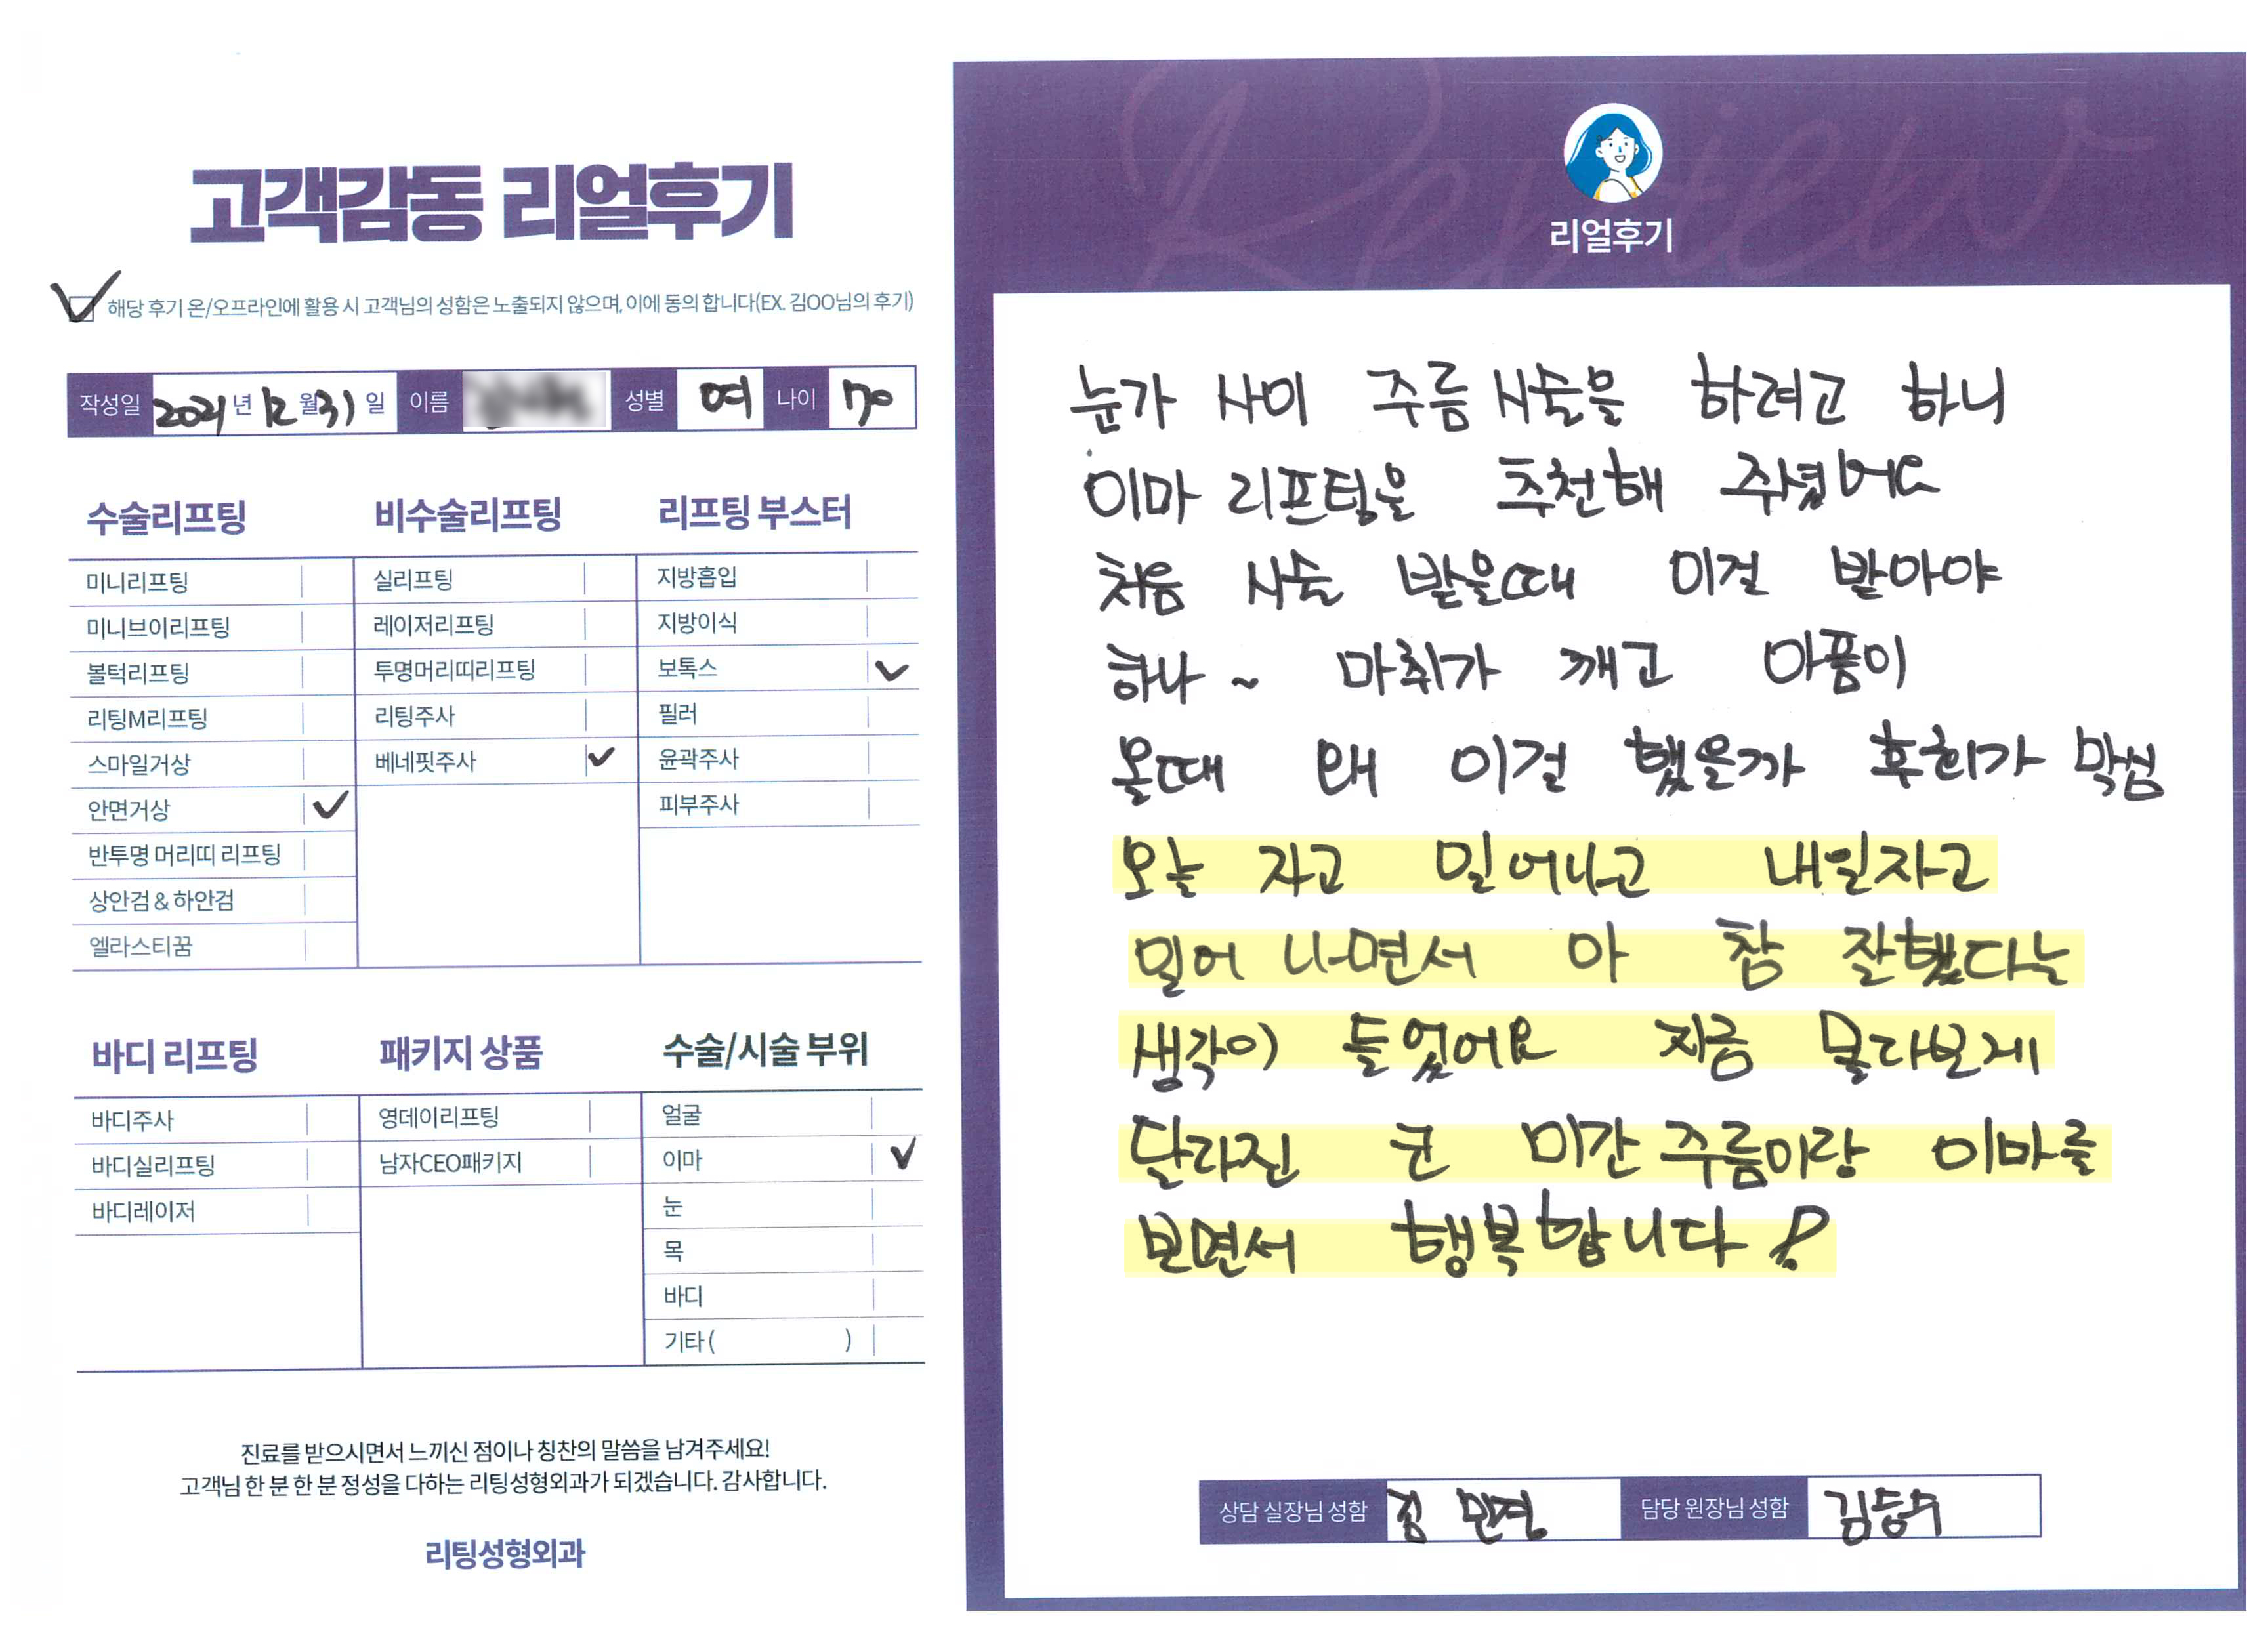 고객감동 리얼후기
해당 후기 온/오프라인에 활용 시 고객님의 성함은 노출되지 않으며, 이에 동의 합니다(EX. 김OO님의 후기)
작성일 2021년 12월 31일 이름 성별 여 나이 70
수술리프팅
미니리프팅
미니브이리프팅
볼턱리프팅
리팅M리프팅
스마일거상
안면거상
반투명 머리띠 리프팅
상안검 & 하안검
엘라스티꿈
비수술리프팅
실리프팅
레이저리프팅
투명머리띠리프팅
리팅주사
베네핏주사
리프팅 부스터
지방흡입
지방이식
보톡스
필러
윤곽주사
피부주사
바디 리프팅
바디주사
바디실리프팅
바디레이저
패키지 상품
영데이리프팅
남자CEO패키지
수술/시술 부위
얼굴
이마
눈
목
바디
기타 ( )
진료를 받으시면서 느끼신 점이나 칭찬의 말씀을 남겨주세요!
고객님 한 분 한 분 정성을 다하는 리팅성형외과가 되겠습니다. 감사합니다.
리팅성형외과
Review
리얼후기
눈가 사이 주름 시술을 하려고 하니
이마 리프팅을 추천해 주셨어요
처음 시술 받을때 이걸 받아야
하나 ~ 마취가 깨고 아픔이
올때 왜 이걸 했을까 후회가 막심
오늘 자고 일어나고 내일자고
일어 나면서 아 참 잘했다는
생각이 들었어요 지금 몰라보게
달라진 눈 미간 주름이랑 이마를
보면서 행복합니다!
상담 실장님 성함 민경
담당 원장님 성함 김승수